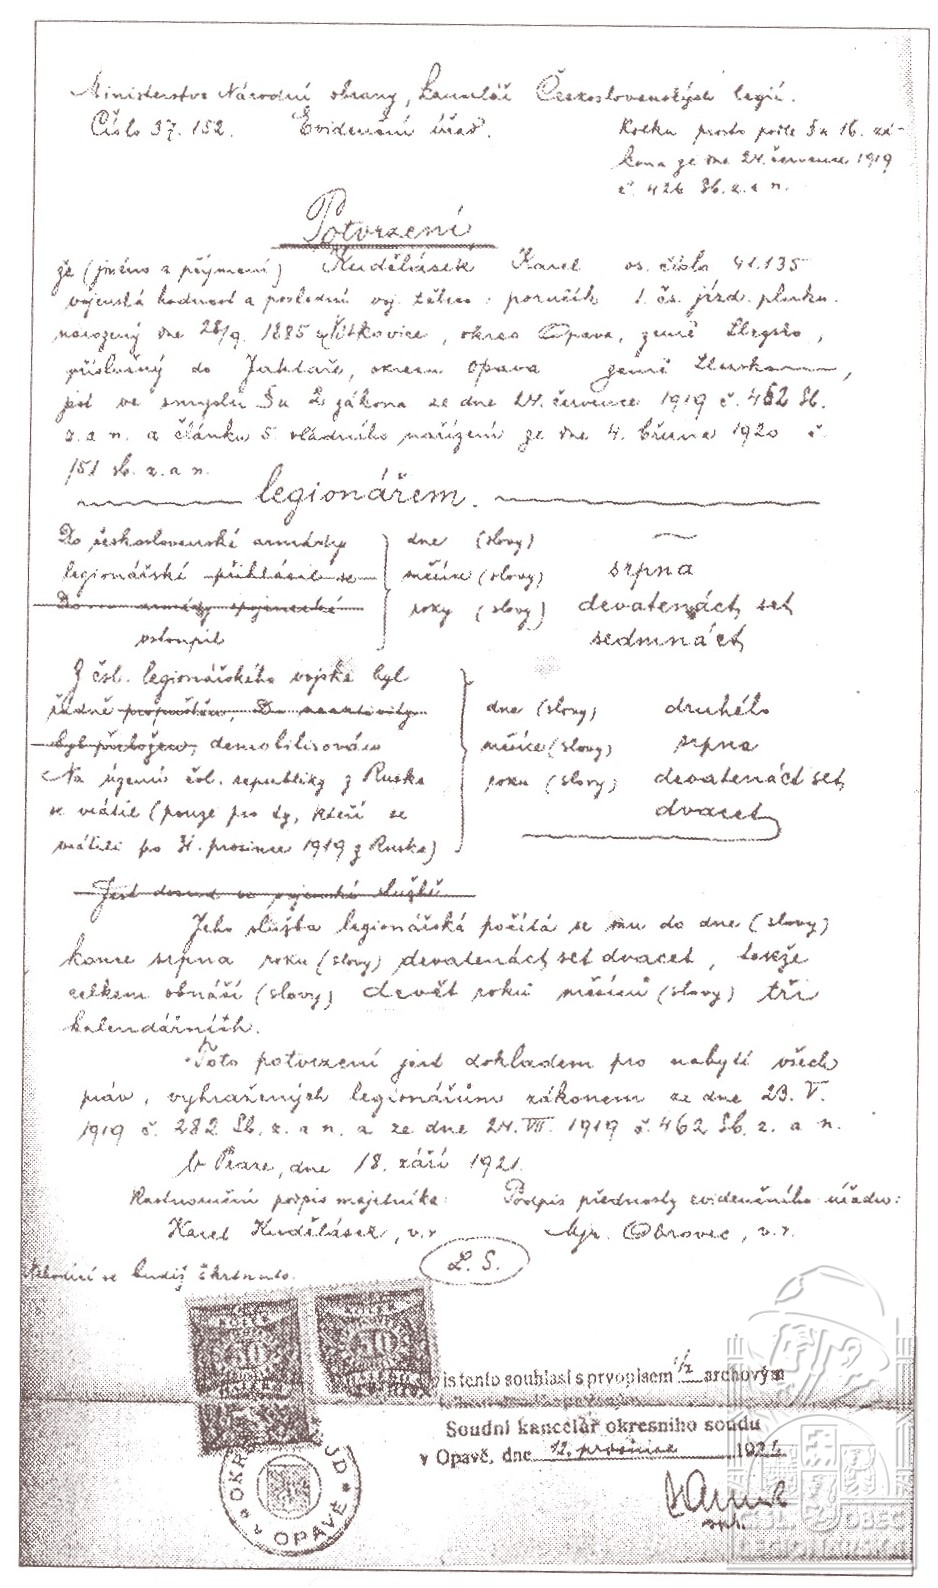 Ministerstvo Národní obrany, kancelář Československých legií.
Číslo 37.152. Evidenční úřad.
Kolku prosto podle §u 16. zá-
kona ze dne 24. července 1919
č. 426 Sb. z. a n.
Potvrzení,
že (jméno a příjmení) Kudělásek Karel os. číslo 41.135
vojenská hodnost a poslední voj. těleso: poručík 1. čs. jízd. pluku.
narozený dne 28/9. 1885 v Vítkovice, okres Opava, země Slezsko,
příslušný do Jaktaře, okresu Opava země Slezsko,
jest ve smyslu §u 2 zákona ze dne 24. července 1919 č. 462 Sb.
z. a n. a článku 5. vládního nařízení ze dne 4. března 1920 č.
151 sb. z. a n.
legionářem.
Do československé armády
legionářské přihlásil se
Do armády spojenecké
vstoupil
dne (slovy) —
měsíce (slovy) srpna
roku (slovy) devatenáct set
sedmnáct
Z čsl. legionářského vojska byl
řádně propuštěn, Do neaktivity
byl přeložen, demobilisován
Na území čsl. republiky z Ruska
se vrátil (pouze pro ty, kteří se
vrátili po 31. prosince 1919 z Ruska)
dne (slovy) druhého
měsíce (slovy) srpna
roku (slovy) devatenáct set
dvacet
Jest dosud ve vojenské službě
Jeho služba legionářská počítá se mu do dne (slovy)
konce srpna roku (slovy) devatenáct set dvacet, takže
celkem obnáší (slovy) devět roků měsíců (slovy) tři
kalendářních.
Toto potvrzení jest dokladem pro nabytí všech
práv, vyhražených legionářům zákonem ze dne 23. V.
1919 č. 282 Sb. z. a n. a ze dne 24. VII. 1919 č. 462 Sb. z. a n.
V Praze, dne 18. září 1921.
Vlastnoruční podpis majetníka: Podpis přednosty evidenčního úřadu:
Karel Kudělásek, v.r. Mjr. Obrovec, v. r.
L. S.
Nehodící se budiž škrtnuto.
KOLEK KOLEK
50 50
HALÉŘŮ
is tento souhlasí s prvopisem 1/2 archovým
Soudní kancelář okresního soudu
v Opavě, dne 12. prosince 192
OKR UD
v OPAVĚ
ČSL. OBEC
LEGIONÁŘSKÁ